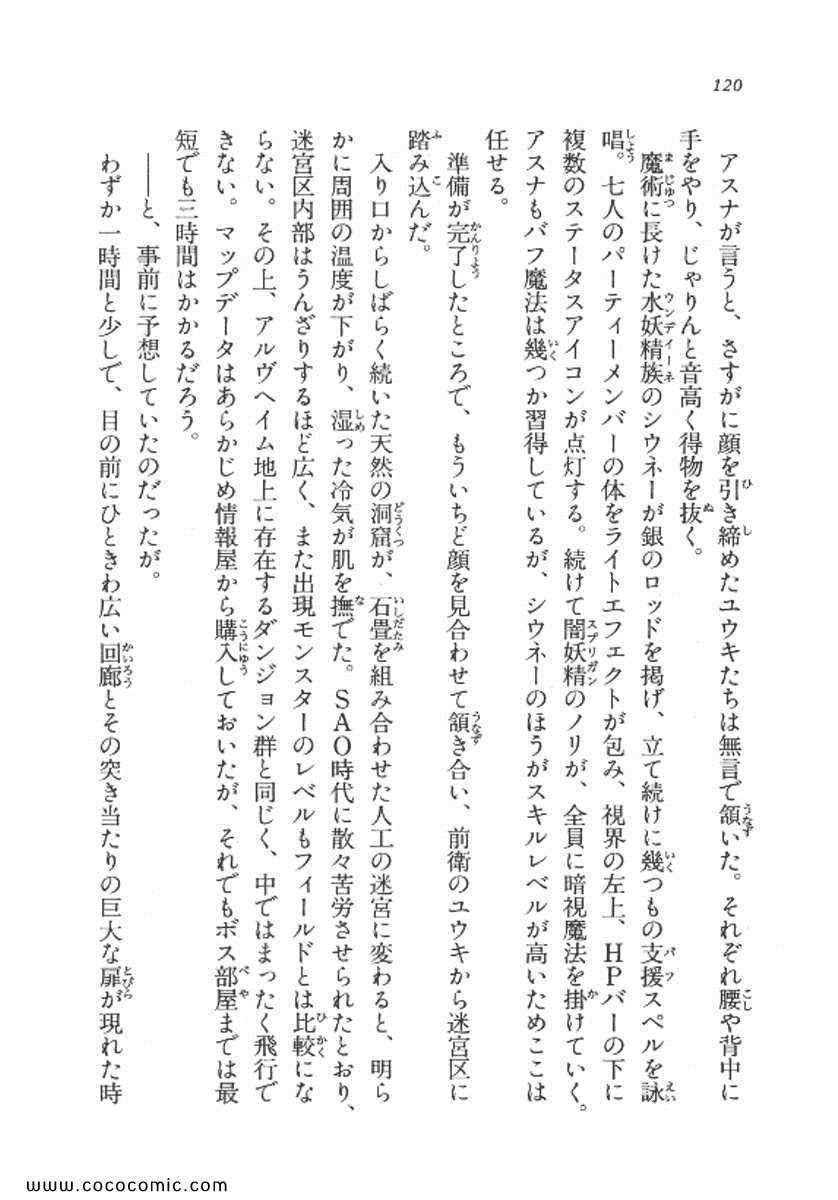 120
アスナが言うと、さすがに顔を引き締めたユウキたちは無言で頷いた。それぞれ腰や背中に
手をやり、じゃりんと音高く得物を抜く。
魔術に長けた水妖精族のシウネーが銀のロッドを掲げ、立て続けに幾つもの支援スペルを詠
唱。七人のパーティーメンバーの体をライトエフェクトが包み、視界の左上、HPバーの下に
複数のステータスアイコンが点灯する。続けて闇妖精のノリが、全員に暗視魔法を掛けていく。
アスナもバフ魔法は幾つか習得しているが、シウネーのほうがスキルレベルが高いためここは
任せる。
準備が完了したところで、もういちど顔を見合わせて頷き合い、前衛のユウキから迷宮区に
踏み込んだ。
入り口からしばらく続いた天然の洞窟が、石畳を組み合わせた人工の迷宮に変わると、明ら
かに周囲の温度が下がり、湿った冷気が肌を撫でた。SAO時代に散々苦労させられたとおり、
迷宮区内部はうんざりするほど広く、また出現モンスターのレベルもフィールドとは比較にな
らない。その上、アルヴヘイム地上に存在するダンジョン群と同じく、中ではまったく飛行で
きない。マップデータはあらかじめ情報屋から購入しておいたが、それでもボス部屋までは最
短でも三時間はかかるだろう。
――と、事前に予想していたのだったが。
わずか一時間と少しで、目の前にひときわ広い回廊とその突き当たりの巨大な扉が現れた時
www.cococomic.com